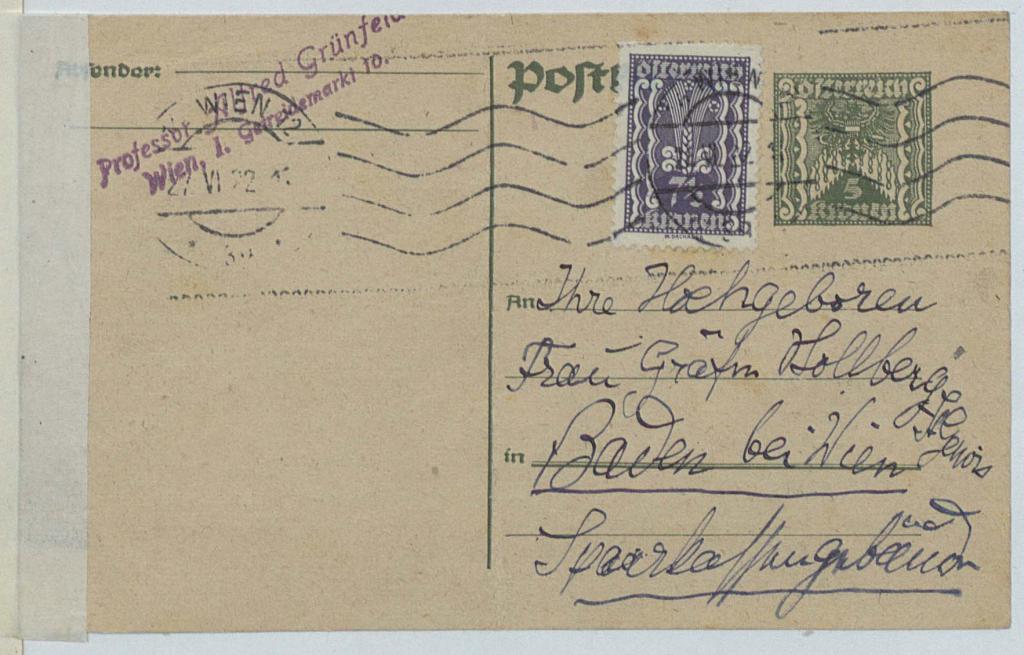 Absender:
Professor Alfred Grünfeld
Wien, I. Getreidemarkt 10.
WIEN
27 VI 22
Postk
Österreich
7½
Kronen
Österreich
5
Kronen
An Ihre Hochgeboren
Frau Gräfin
in Baden bei Wien
Sparkassengebäude